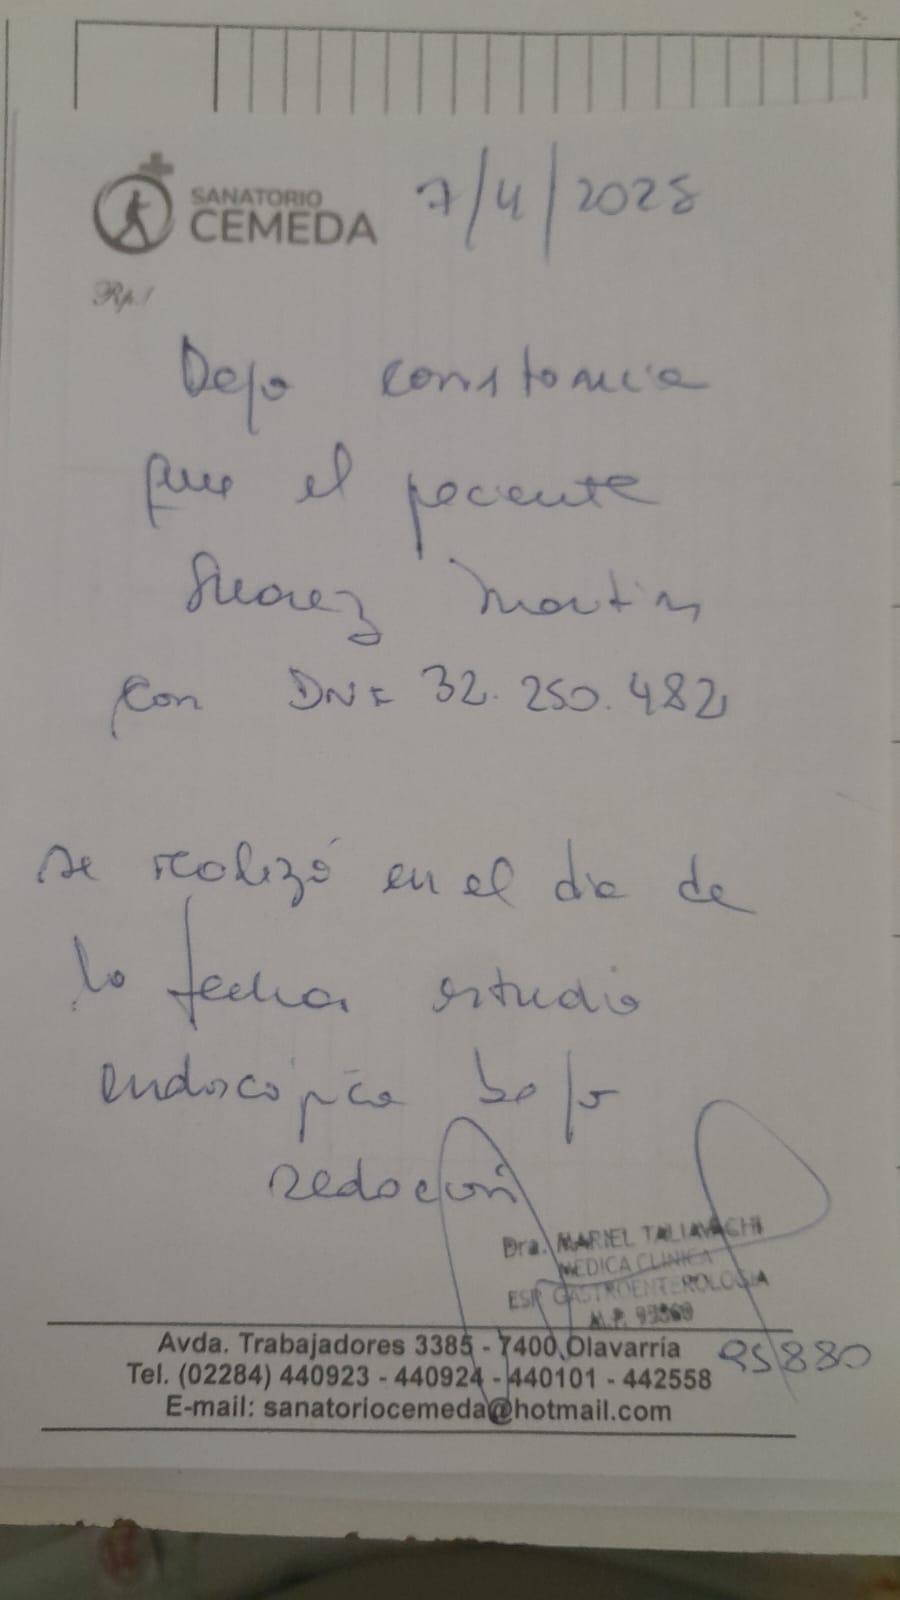 SANATORIO
CEMEDA
7/4/2025
Rp./
Dejo constancia
que el paciente
Suarez Martin
con DNI 32.250.482
se realizó en el dia de
la fecha estudio
endoscópico bajo
sedación
Dra. MARIEL TALIAVACHI
MEDICA CLINICA
ESP. GASTROENTEROLOGIA
M.P.
95880
Avda. Trabajadores 3385 - 7400 Olavarría
Tel. (02284) 440923 - 440924 - 440101 - 442558
E-mail: sanatoriocemeda@hotmail.com